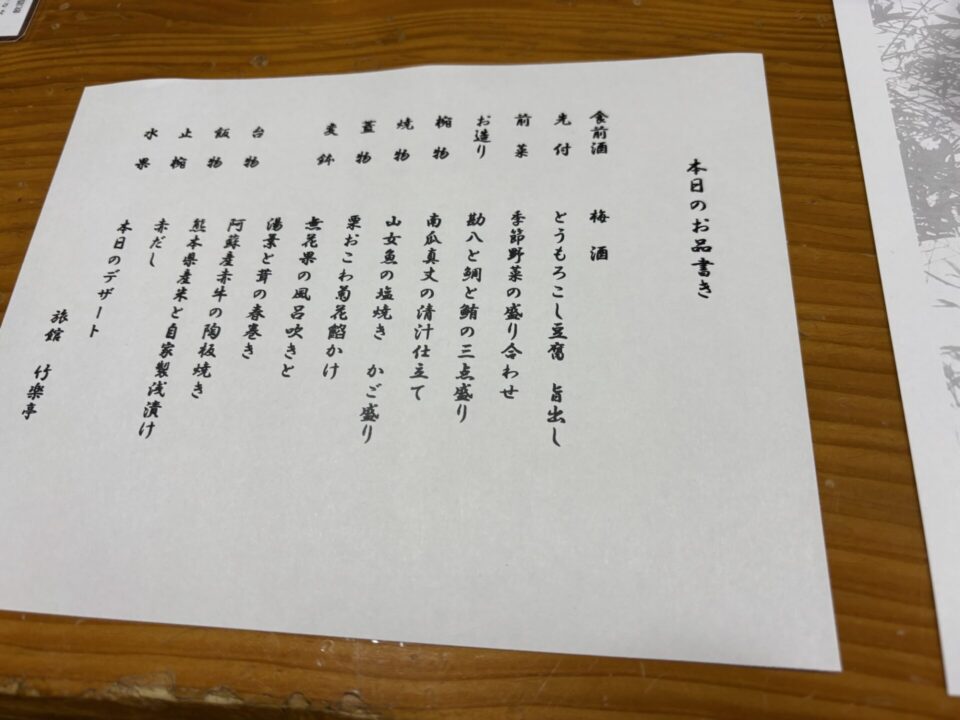 本日のお品書き
食前酒 梅酒
先付 とうもろこし豆腐 旨出し
前菜 季節野菜の盛り合わせ
お造り 勘八と鯛と鮪の三点盛り
椀物 南瓜真丈の清汁仕立て
焼物 山女魚の塩焼き かご盛り
蓋物 栗おこわ菊花餡かけ
変鉢 無花果の風呂吹きと
湯葉と茸の春巻き
台物 阿蘇産赤牛の陶板焼き
飯物 熊本県産米と自家製浅漬け
止椀 赤だし
水果 本日のデザート
旅館 竹楽亭